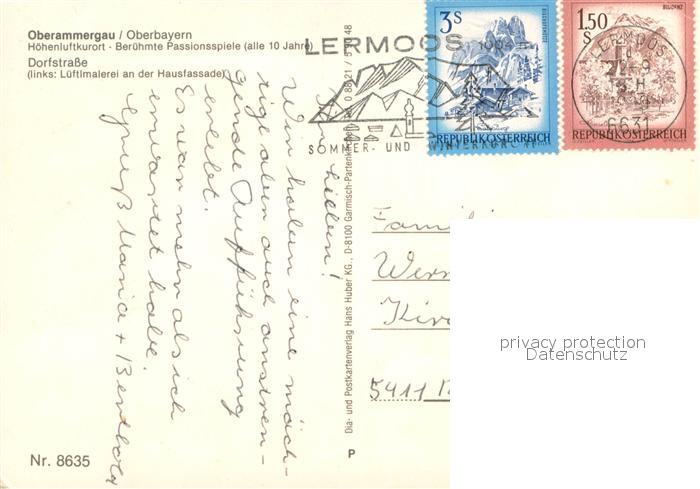 Oberammergau / Oberbayern
Höhenluftkurort · Berühmte Passionsspiele (alle 10 Jahre)
Dorfstraße
(links: Lüftlmalerei an der Hausfassade)
LERMOOS 1004 m
SOMMER- UND WINTERKURORT
3S
REPUBLIK ÖSTERREICH
1.50
S
BLUDENZ
REPUBLIK ÖSTERREICH
LERMOOS
6631
Ihr Lieben!
Wir haben eine mäch-
tige aber auch anstren-
gende Aufführung
erlebt.
Es war mehr als ich
erwartet habe.
Gruß Maria + Berthold
Dia- und Postkartenverlag Hans Huber KG., D-8100 Garmisch-Partenkirchen
Familie
Wern
Kir
5411
privacy protection
Datenschutz
Nr. 8635
P